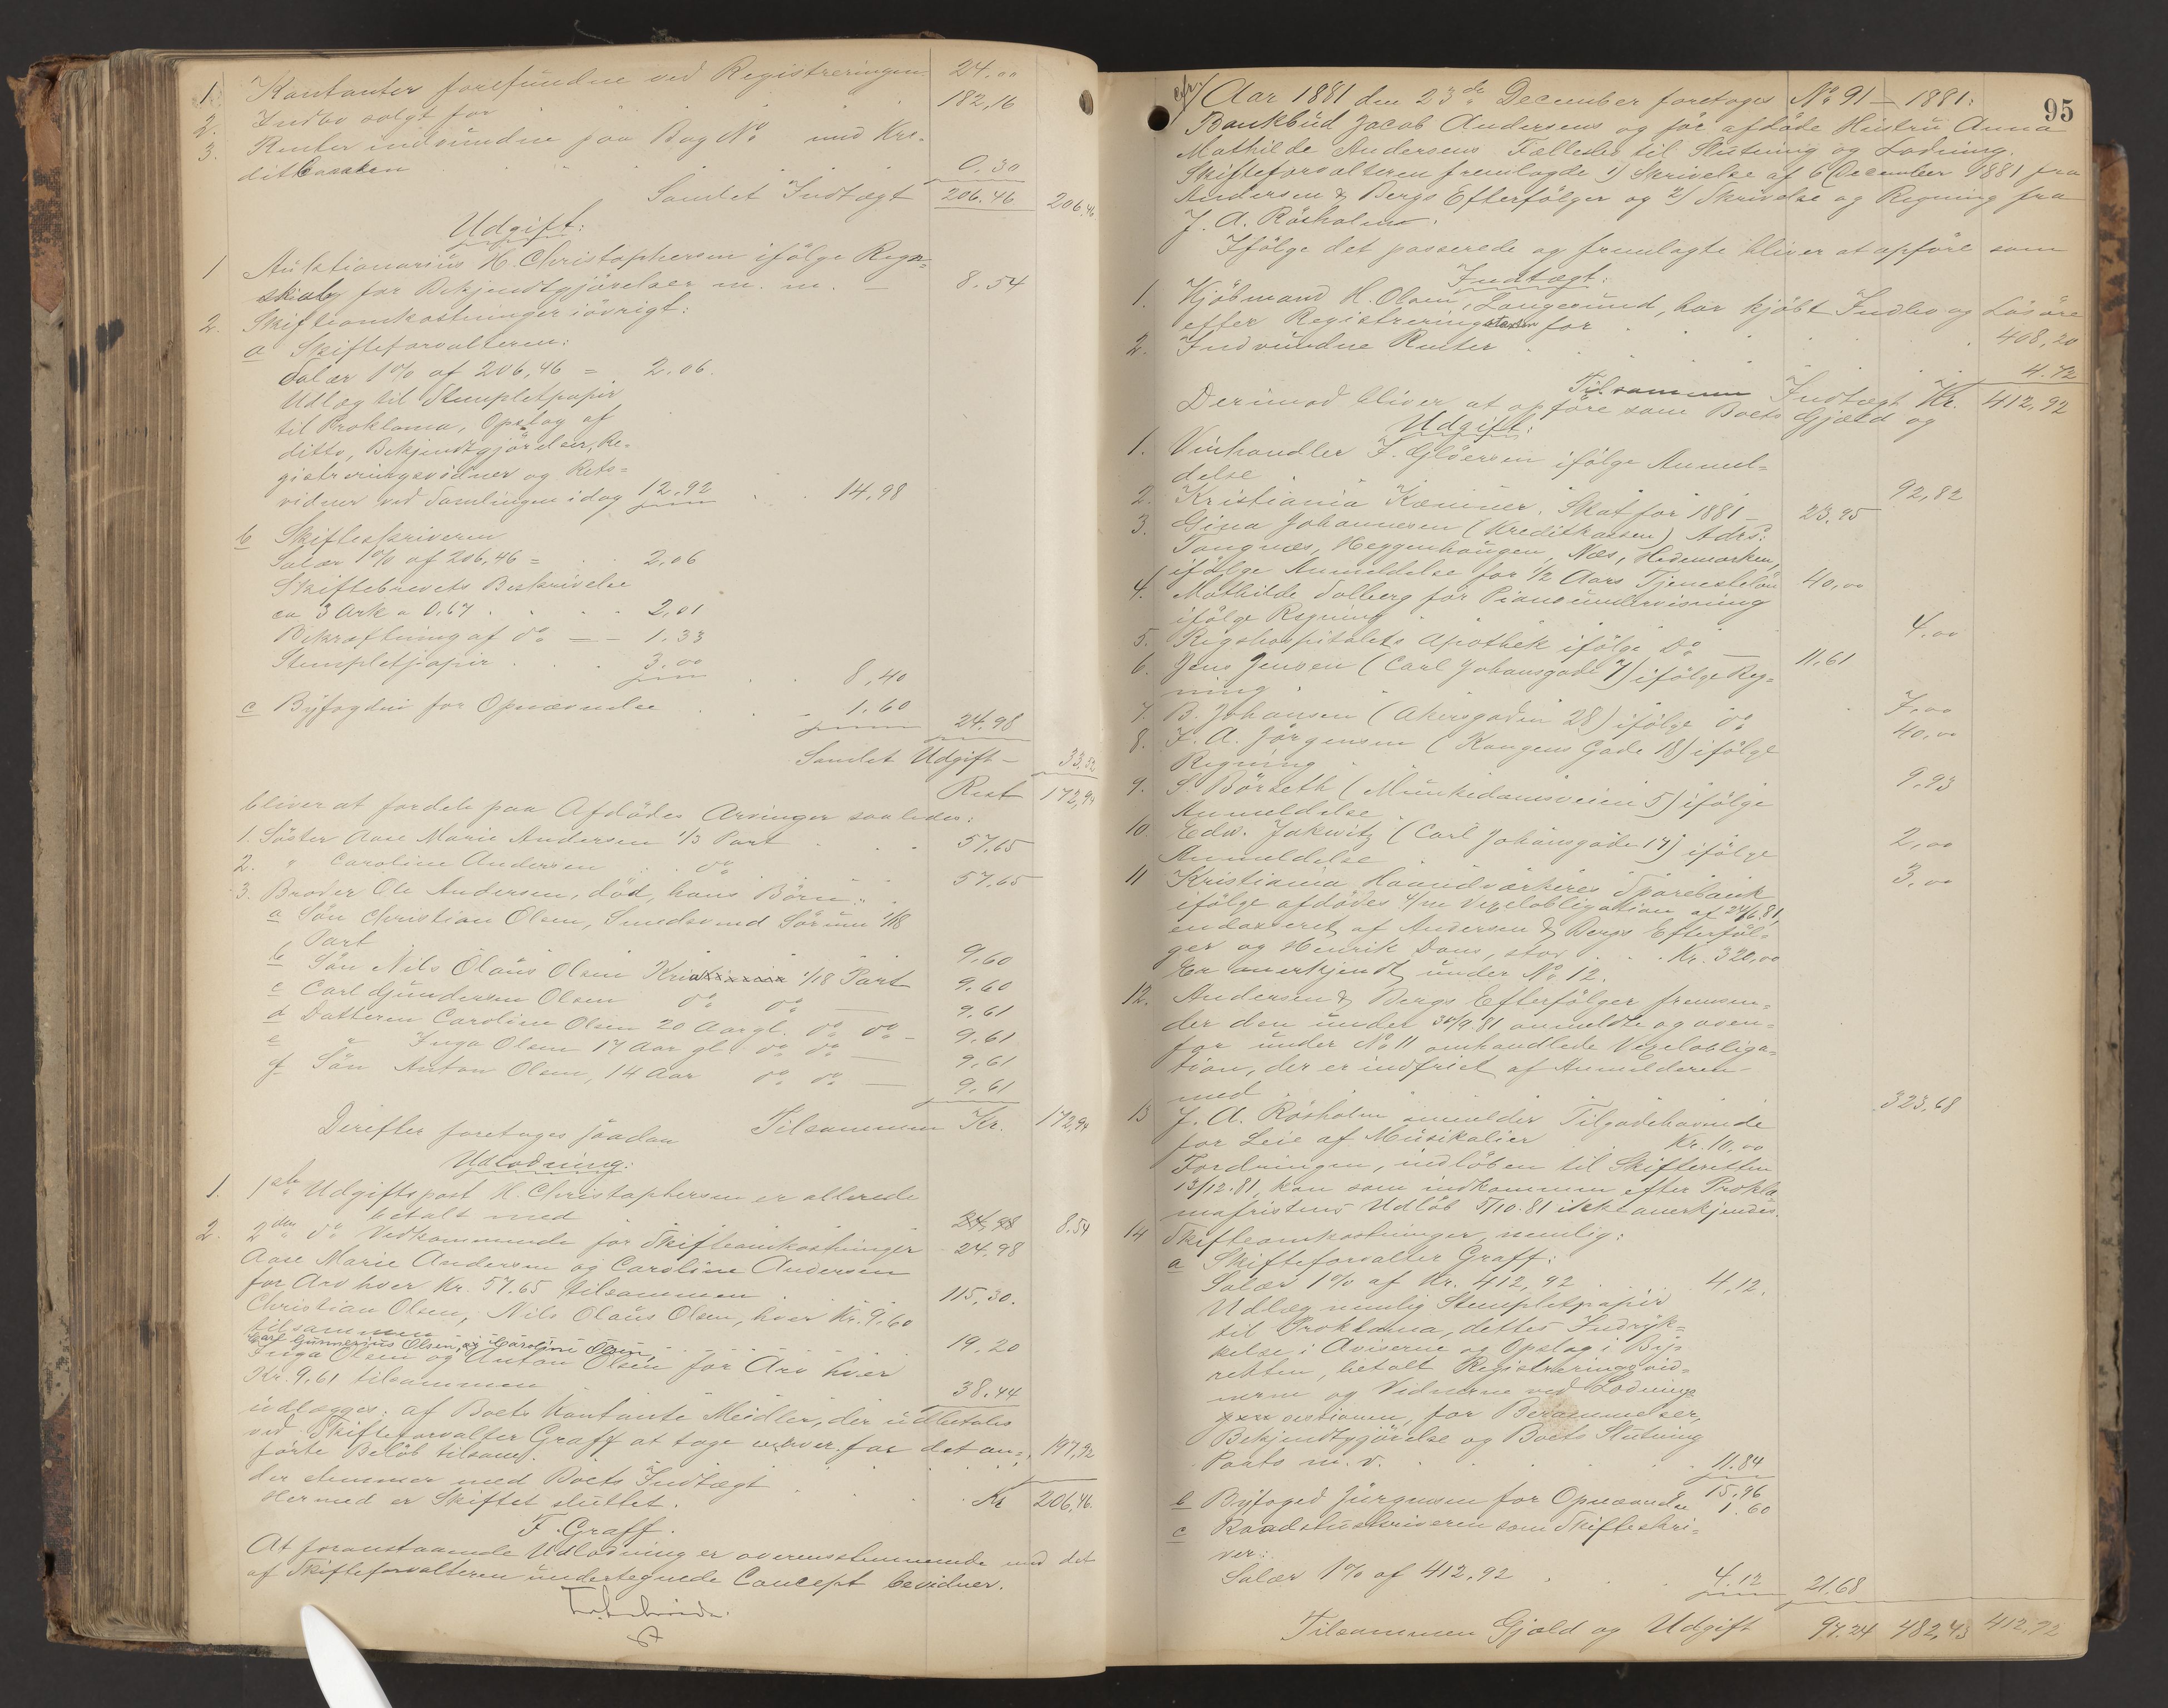 1. Kontanter forefundne ved Registreringen 24,00
2. Indbo solgt for 182,16
3. Renter indvundne paa Bog No med Kre-
ditkassen 0.30
Samlet Indtægt 206.46 206.46
Udgift:
1 Auktionarius H. Christophersen ifölge Regn-
skab for Bekjendtgjörelser m. m. — 8.54
2. Skifteomkostninger iövrigt:
a Skifteforvalteren:
Salær 1% af 206,46 = 2.06.
Udlæg til Stempletpapir
til Proklama, Opslag af
ditto, Bekjendtgjörelser, Re-
gistreringsvidner og Rets-
vidner ved Samlingen idag 12.92 14,98
b Skifteskriveren
Salær 1% af 206,46 = 2,06
Skiftebrevets Beskrivelse
ca 3 Ark a 0.67 2,01
Bekræftning af do — 1.33
Stempletpapir 3.00
8,40
c Byfogden for Opnævnelse 1.60 24.98
Samlet Udgift — 33.52
Rest 172,94
bliver at fordele paa Afdödes Arvinger saaledes:
1. Söster Aase Marie Andersen 1/3 Part 57.65
2. " Caroline Andersen do 57.65
3. Broder Ole Andersen, död, hans Börn:
a Sön Christian Olsen, Sundsvand Sörum 1/18
Part 9,60
b Sön Nils Olaus Olsen Kristiania 1/18 Part 9.60
c Carl Gundersen Olsen do do — 9.61
d Datteren Caroline Olsen 20 Aar gl. do do — 9.61
e " Inga Olsen 17 Aar gl. do do — 9.61
f Sön Anton Olsen, 14 Aar do do — 9.61
Tilsammen Kr. 172,94
Derefter foretages saadan
Udlodning:
1. 1ste Udgiftspost H. Christophersen er allerede
betalt med 8.54
2. 2den do Vedkommende for Skifteomkostninger 24.98
Aase Marie Andersen og Caroline Andersen
for Arv hver Kr. 57.65 tilsammen 115,30.
Christian Olsen, Nils Olaus Olsen, hver Kr. 9.60
tilsammen 19.20
Carl Gunnerius Olsen, og Caroline Olsen,
Inga Olsen og Anton Olsen for Arv hver
Kr. 9.61 tilsammen 38.44
udlægges: af Boets kontante Midler, der udbetales
ved Skifteforvalter Graff at tage enhver for det an-
förte Belöb tilsam. 197,92
der stemmer med Boets Indtægt Kr 206,46.
Hermed er Skiftet sluttet.
F. Graff.
At foranstaaende Udlodning er overensstemmende med det
af Skifteforvalteren undertegnede Concept bevidner.
95
Aar 1881 den 23de December foretoges No 91 — 1881:
Bankbud Jacob Andersens og för afdöde Hustru Anna
Mathilde Andersens Fællesbo til Slutning og Lodning.
Skifteforvalteren fremlagde 1) Skrivelse af 6 December 1881 fra
Andersen & Bergs Efterfölger og 2) Skrivelse og Regning fra
J. A. Rösholm.
Ifölge det passerede og fremlagte bliver at opföre som
Indtægt:
1. Kjöbmand H. Olsen, Langesund, har kjöbt Indbo og Lösöre
efter Registreringstaxten for 408,20
2. Indvundne Renter 4.72
Tilsammen Indtægt Kr. 412,92
Derimod bliver at opföre som Boets Gjæld og
Udgift:
1. Vinhandler F. Glöersen ifölge Anmel-
delse 92,82
2. Kristiania Kæmner, Skat for 1881 — 23.95
3. Gina Johannesen (Kreditkassen) Adrs:
Tangnæs, Heggenhaugen, Næs, Hedemarken,
ifölge Anmeldelse for 1/2 Aars Tjenestelön 40,00
4. Mathilde Solberg for Pianoundervisning
ifölge Regning 4.00
5. Rigshospitalets Apothek ifölge Do — 11.61
6. Jens Jensen (Carl Johansgade 7) ifölge Reg-
ning 7,00
7. B. Johansen (Akersgaden 28) ifölge do 40,00
8. F. A. Jörgensen (Kongens Gade 18) ifölge
Regning 9,93
9. S. Börseth (Munkedamsveien 5) ifölge
Anmeldelse 2,00
10. Edw. Jakwitz (Carl Johansgade 17) ifölge
Anmeldelse 3,00
11 Kristiania Haandværkeres Sparebank
ifölge afdödes 4/m Vexelobligation af 24/6.81,
endosseret af Andersen & Bergs Efterföl-
ger og Henrik Dons, stor Kr. 320,00
Er anerkjendt under No 12.
12. Andersen & Bergs Efterfölger fremsen-
der den under 30/9.81 anmeldte og oven-
for under No 11 omhandlede Vexelobliga-
tion, der er indfriet af Anmelderen
med 323,68
13 J. A. Rösholm anmelder Tilgodehavende
for Leie af Musikalier Kr. 10,00
Fordringen, indlöben til Skifteretten
13/12.81, kan som indkommen efter Prokla-
mafristens Udlöb 5/10.81 ikke anerkjendes.
14 Skifteomkostninger, nemlig:
a Skifteforvalter Graff:
Salær 1% af Kr. 412,92 4,12.
Udlæg nemlig Stempletpapir
til Proklama, dettes Indryk-
kelse i Aviserne og Opslag i By-
retten, betalt Registreringsvid-
nerne og Vidnerne ved Lodnings-
sessionen, for Berammelser,
Bekjendtgjörelse og Boets Slutning
Porto m. v. 11.84
15,96
b Byfoged Jürgensen for Opnævnelse 1.60
c Raadstueskriveren som Skifteskri-
ver:
Salær 1% af 412.92 4.12 21.68
Tilsammen Gjæld og Udgift 97.24 482,43 412,92